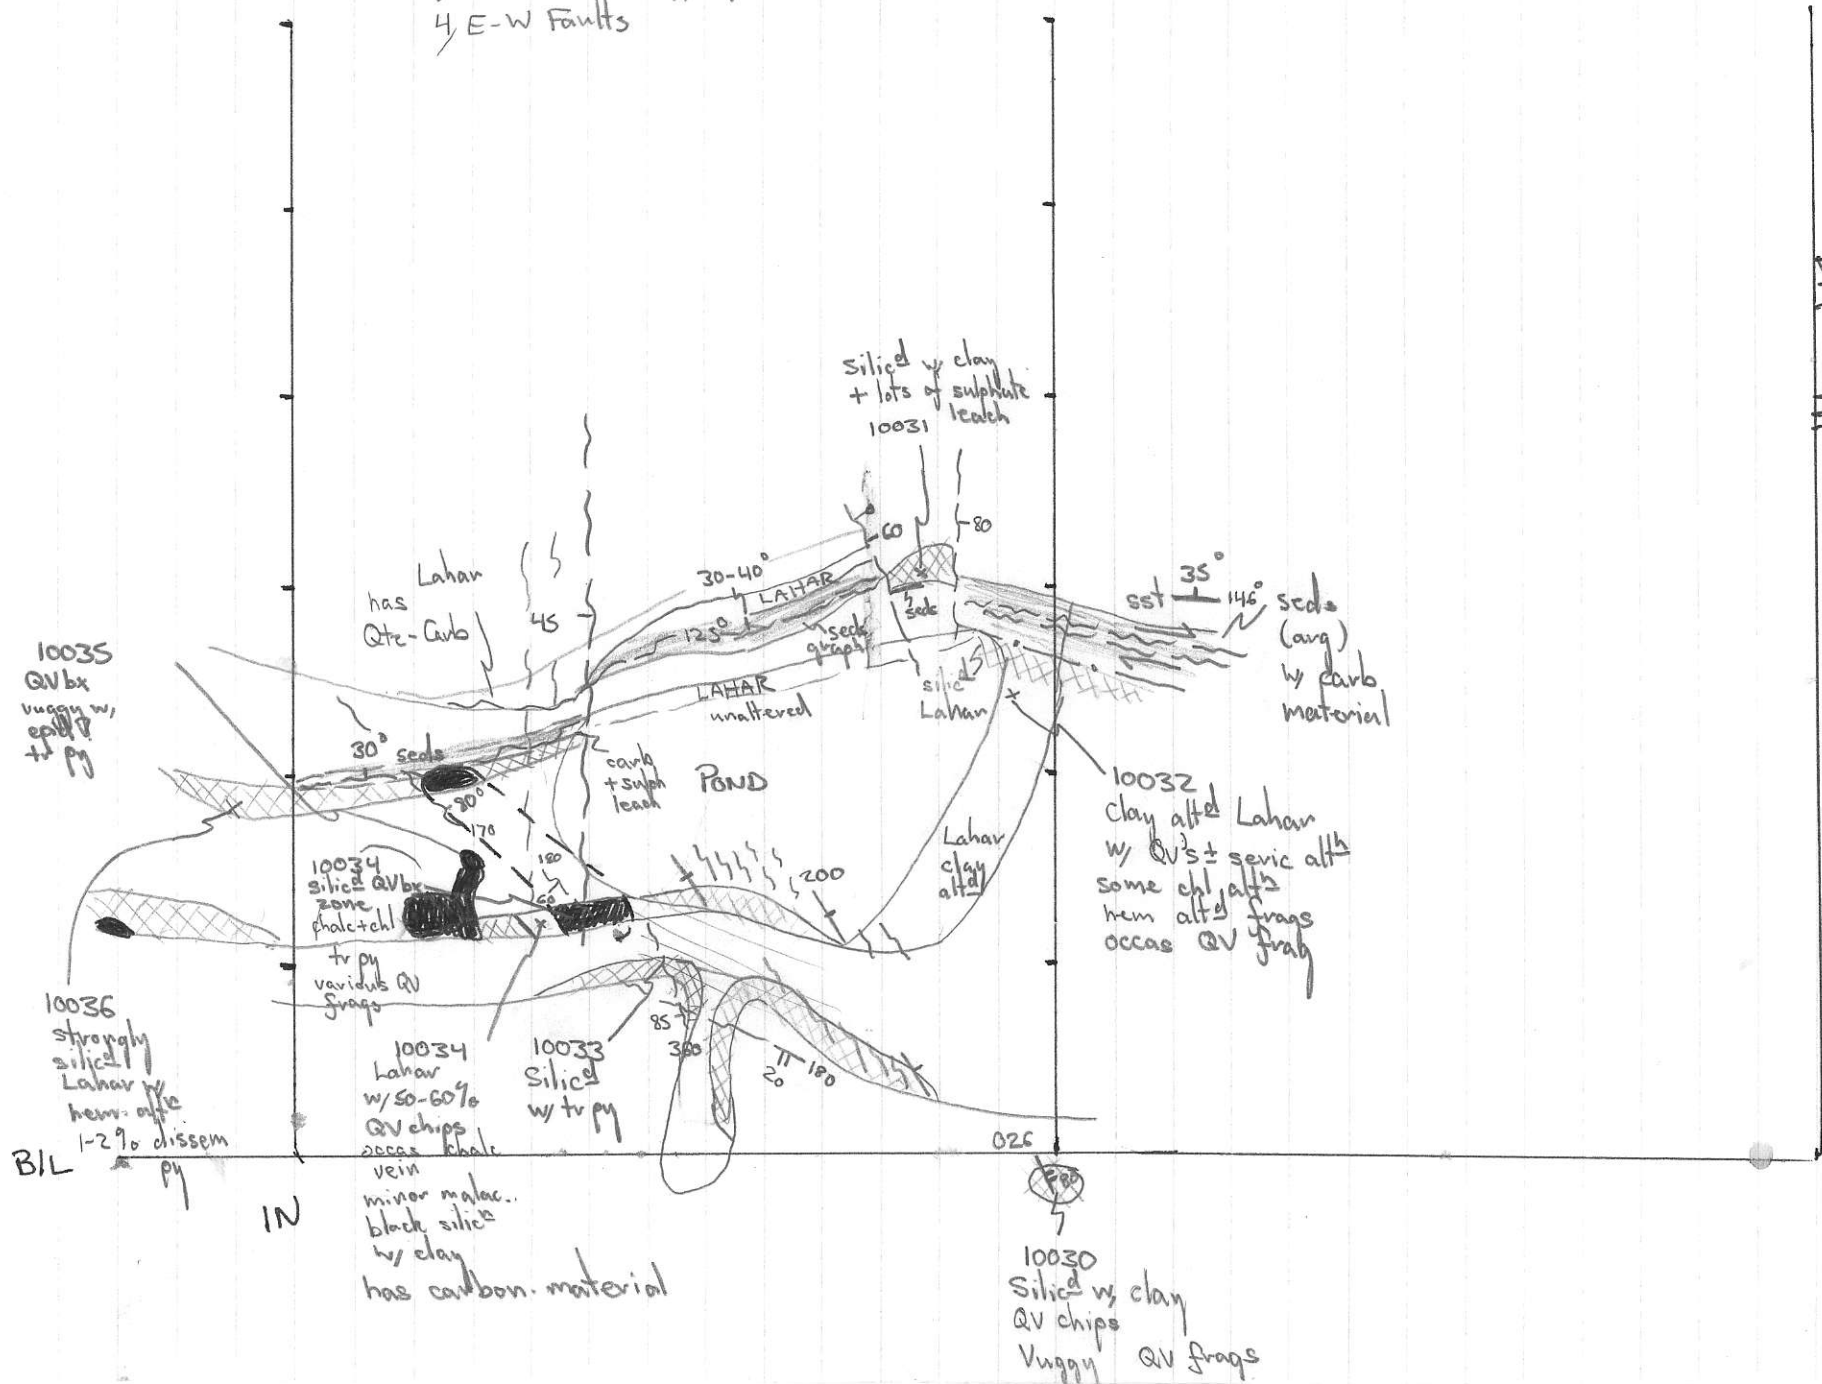 4, E-W Faults
silicᵈ w/ clay
+ lots of sulphate
leach
10031
60
80
Lahar
has
Qtz-Carb
45
30-40°
LAHAR
125°
seds
graph
seds
35°
sst
146°
seds
(arg)
w/ carb
material
silicᵈ
Lahar
LAHAR
unaltered
10035
QVbx
vuggy w/
tr py
30°
seds
80°
170
carb
+ sulph
leach
POND
10032
Clay altᵈ Lahar
w/ QV's ± seric altⁿ
some chl altⁿ
hem altᵈ frags
occas QV frag
Lahar
clay
altᵈ
200
180
60
10034
silicᵈ QVbx
zone
chalc+chl
tr py
various QV
frags
10036
strongly
silicᵈ
Lahar w/
hem altⁿ
1-2% dissem
py
10034
Lahar
w/ 50-60%
QV chips
occas chalc
vein
minor malac..
black silicⁿ
w/ clay
has carbon. material
10033
Silicᵈ
w/ tr py
85
360
20
180
026
B/L
IN
80
10030
Silicᵈ w/ clay
QV chips
Vuggy QV frags